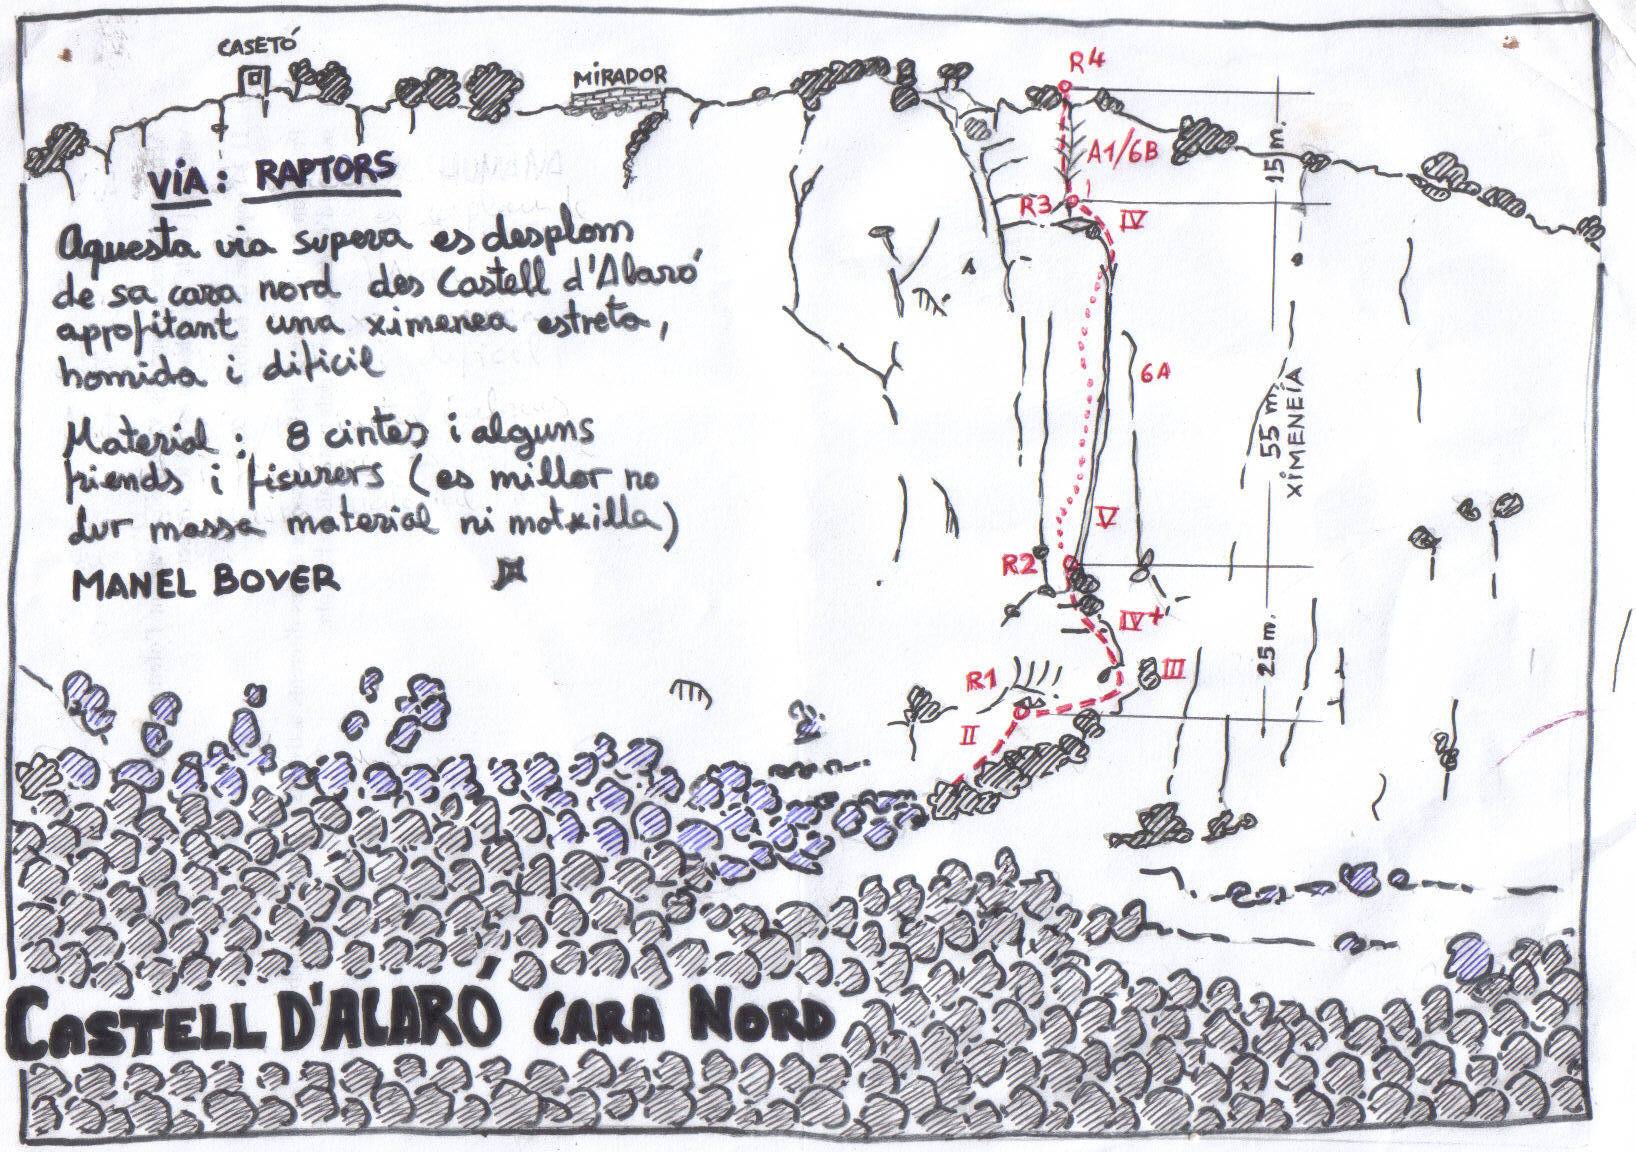 CASETÓ
MIRADOR
VÍA: RAPTORS
Aquesta via supera es desplom
de sa cara nord des Castell d'Alaró
aprofitant una ximenea estreta,
homida i dificil
Material: 8 cintes i alguns
friends i fisurers (es millor no
dur massa material ni motxilla)
MANEL BOVER
R4
A1/6B
15 m.
R3
IV
6A
55 m.
XIMENEÍA
V
R2
IV+
25 m.
R1
III
II
CASTELL D'ALARÓ CARA NORD